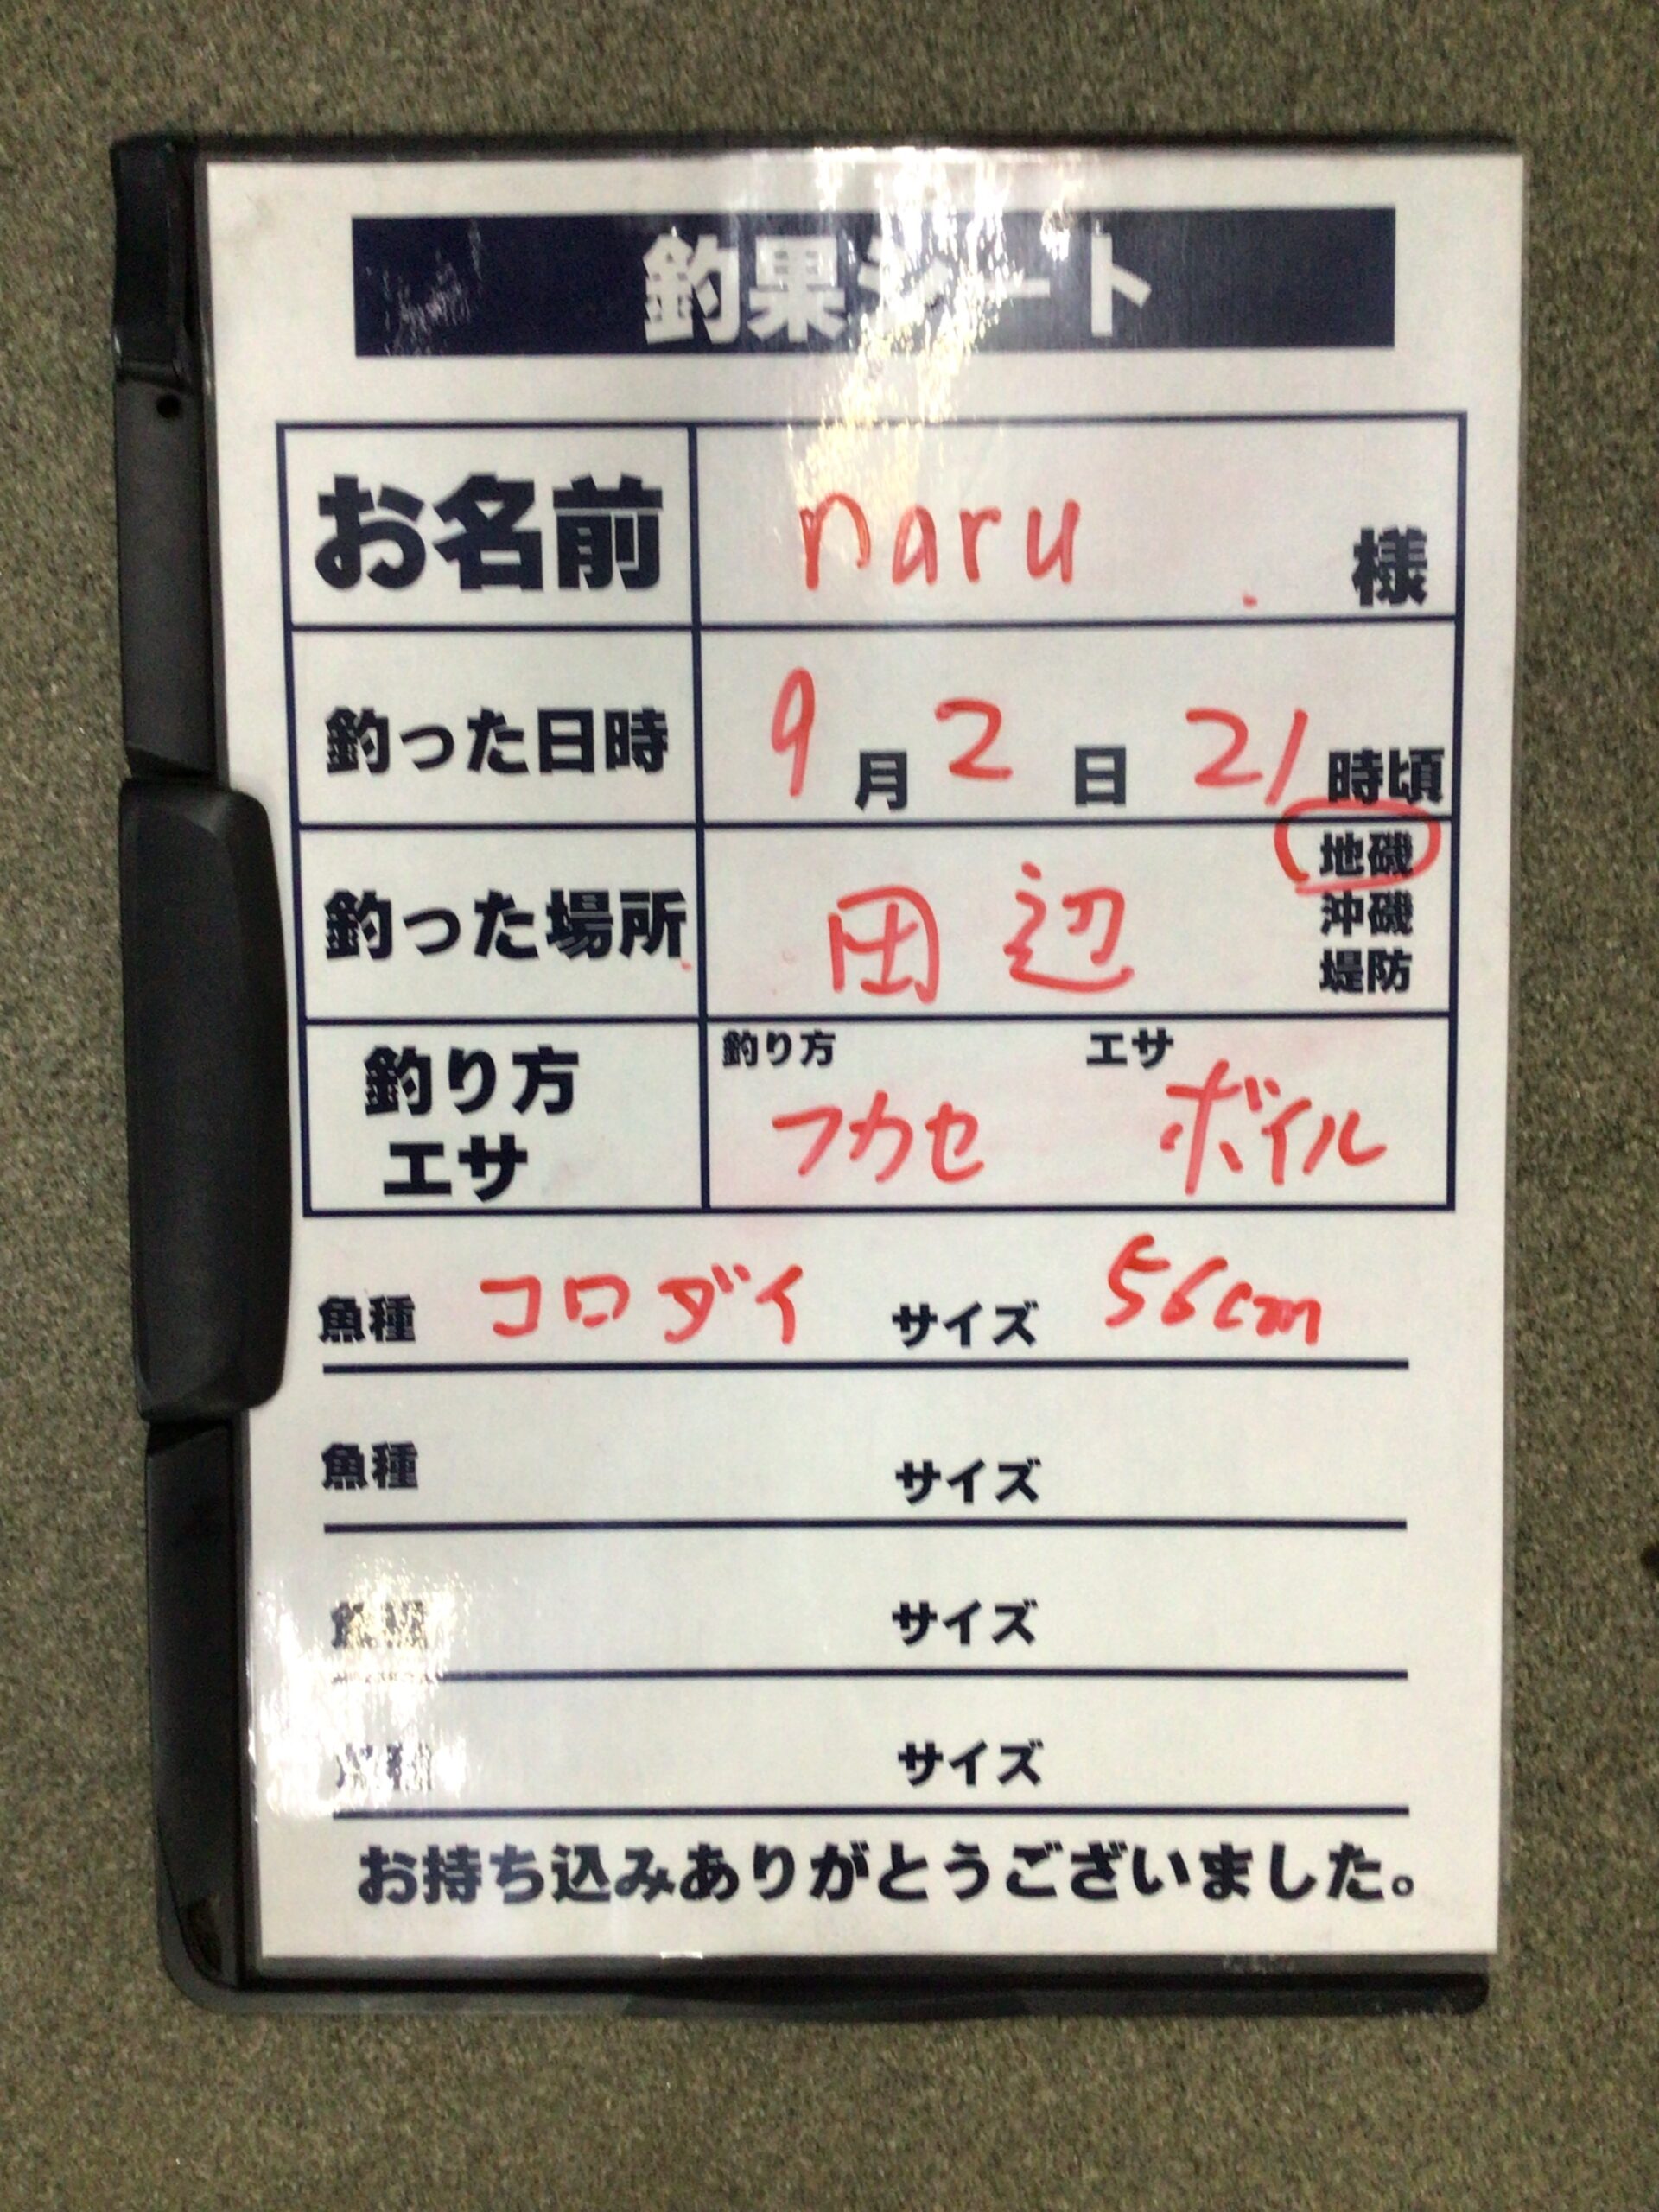 釣果シート
お名前 naru 様
釣った日時 9月2日 21時頃
釣った場所 田辺 地磯
沖磯
堤防
釣り方 エサ 釣り方 フカセ エサ ボイル
魚種 コロダイ サイズ 56cm
魚種 サイズ
魚種 サイズ
魚種 サイズ
お持ち込みありがとうございました。